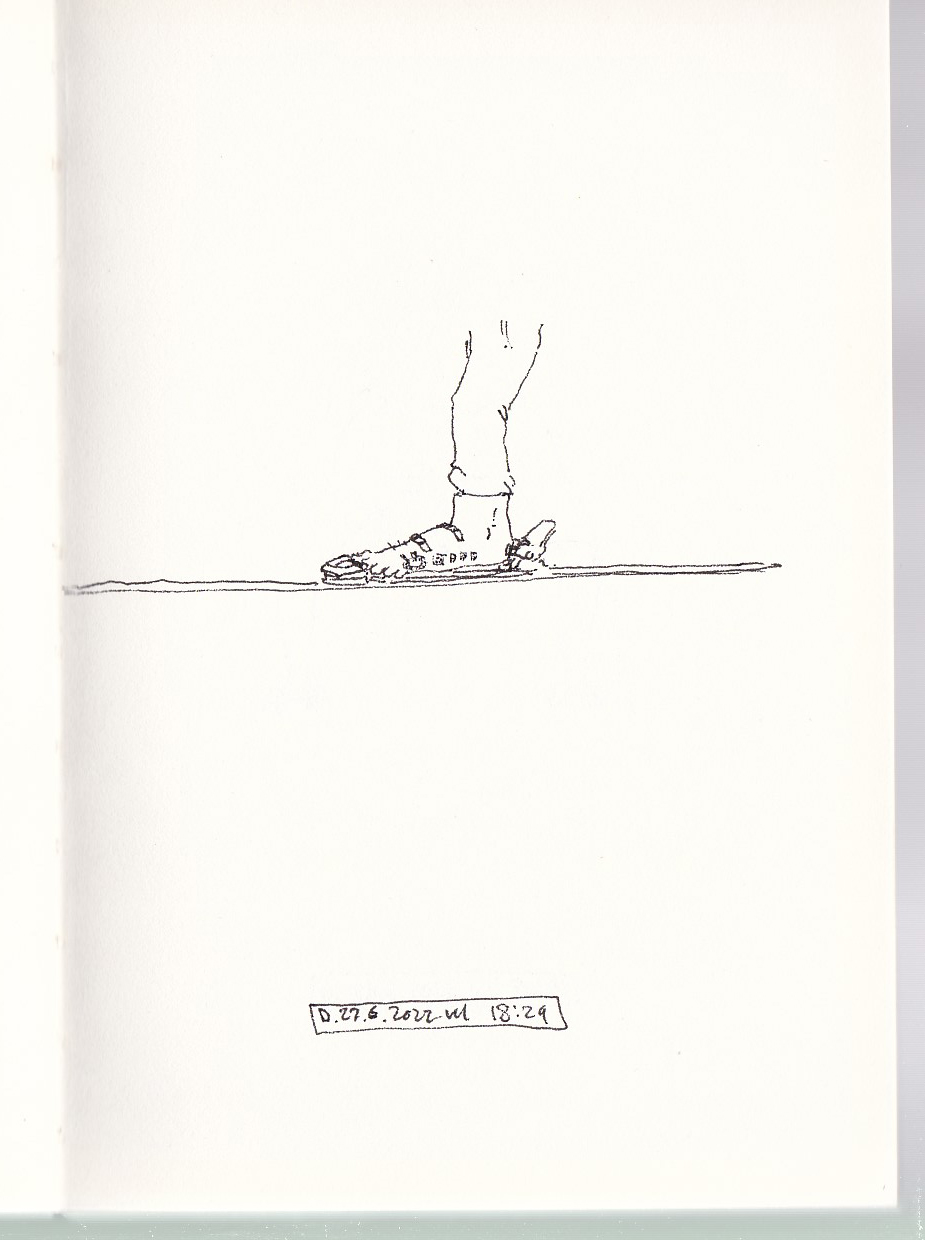 D.27.6.2022 vl 18:29